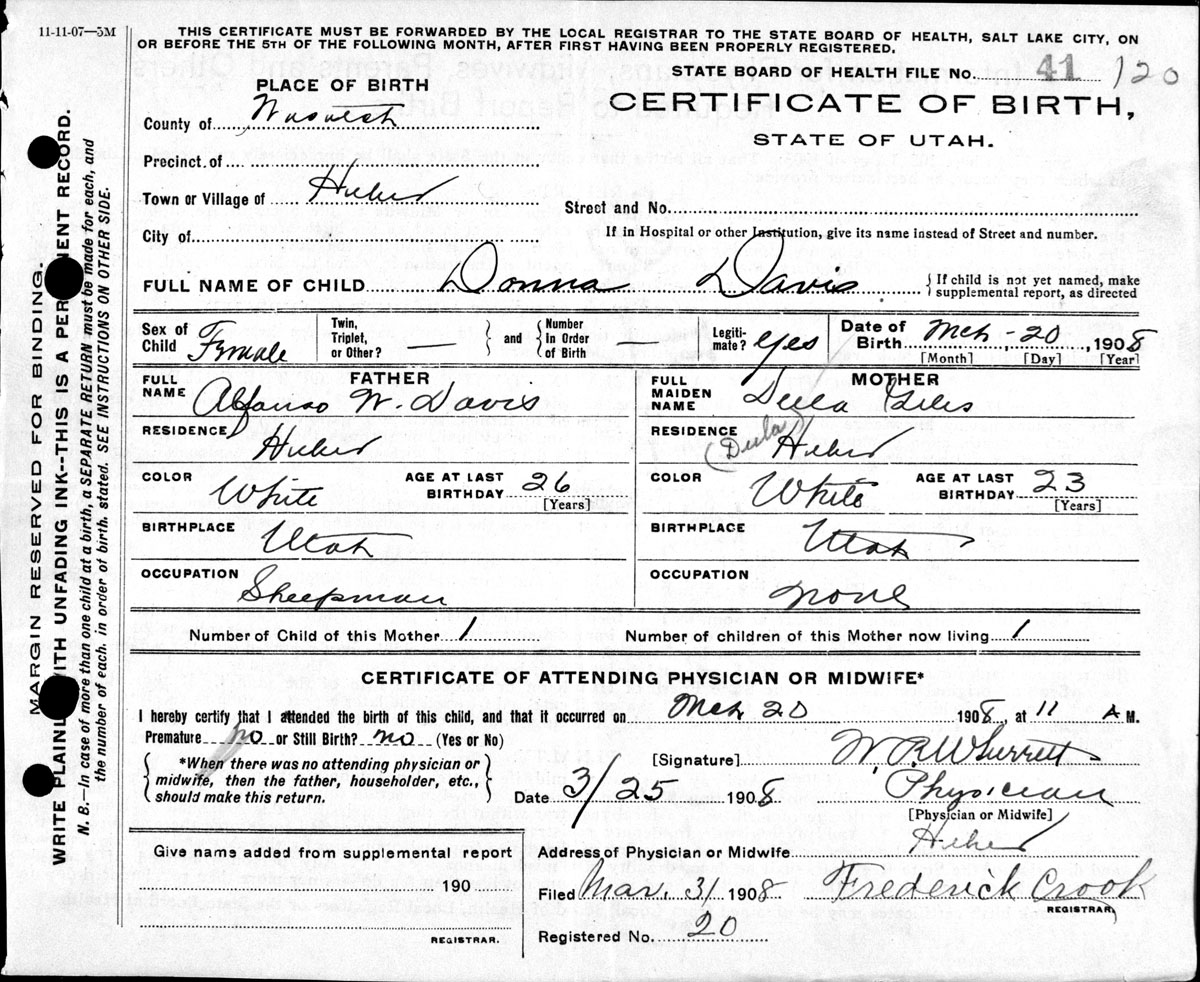 11-11-07—5M
THIS CERTIFICATE MUST BE FORWARDED BY THE LOCAL REGISTRAR TO THE STATE BOARD OF HEALTH, SALT LAKE CITY, ON
OR BEFORE THE 5TH OF THE FOLLOWING MONTH, AFTER FIRST HAVING BEEN PROPERLY REGISTERED.
STATE BOARD OF HEALTH FILE No. 41 120
CERTIFICATE OF BIRTH,
STATE OF UTAH.
PLACE OF BIRTH
County of Wasatch
Precinct of
Town or Village of Heber
Street and No.
City of
If in Hospital or other Institution, give its name instead of Street and number.
FULL NAME OF CHILD Donna Davis
{If child is not yet named, make
supplemental report, as directed
Sex of Child Female
Twin, Triplet, or Other? —
and
Number In Order of Birth —
Legiti-mate? yes
Date of Birth Mch-20, 1908
[Month] [Day] [Year]
FATHER
FULL NAME Alfonso W. Davis
RESIDENCE Heber
COLOR White
AGE AT LAST BIRTHDAY 26
[Years]
BIRTHPLACE Utah
OCCUPATION Sheepman
MOTHER
FULL MAIDEN NAME Della Giles
RESIDENCE (Deela) Heber
COLOR White
AGE AT LAST BIRTHDAY 23
[Years]
BIRTHPLACE Utah
OCCUPATION None
Number of Child of this Mother 1
Number of children of this Mother now living 1
CERTIFICATE OF ATTENDING PHYSICIAN OR MIDWIFE*
I hereby certify that I attended the birth of this child, and that it occurred on Mch 20 1908, at 11 A M.
Premature no or Still Birth? no (Yes or No)
*When there was no attending physician or
midwife, then the father, householder, etc.,
should make this return.
[Signature]
Date 3/25 1908
Physician
[Physician or Midwife]
Address of Physician or Midwife Heber
Give name added from supplemental report
190
REGISTRAR.
Filed Mar. 31 1908
Frederick Crook
REGISTRAR
Registered No. 20
MARGIN RESERVED FOR BINDING.
WRITE PLAINL WITH UNFADING INK--THIS IS A PER ENT RECORD.
N. B.—In case of more than one child at a birth, a SEPARATE RETURN must be made for each, and
the number of each, in order of birth, stated. SEE INSTRUCTIONS ON OTHER SIDE.